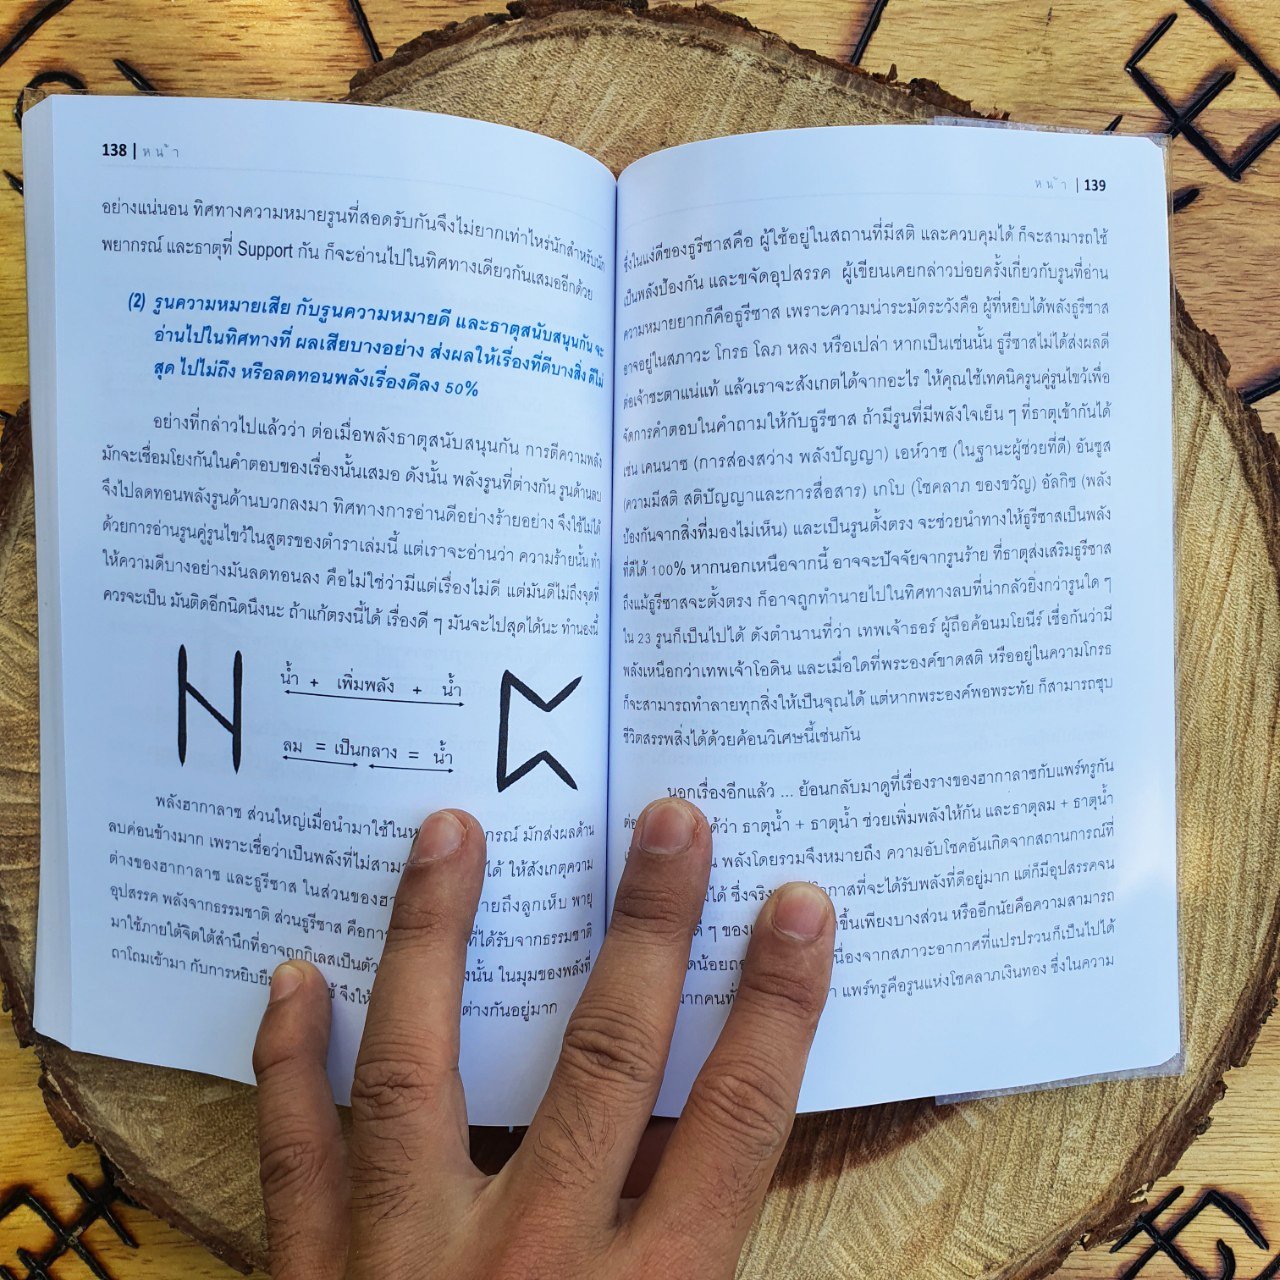 138 | หน้า
อย่างแน่นอน ทิศทางความหมายรูนที่สอดรับกันจึงไม่ยากเท่าไหร่นักสำหรับนัก
พยากรณ์ และธาตุที่ Support กัน ก็จะอ่านไปในทิศทางเดียวกันเสมออีกด้วย
(2) รูนความหมายเสีย กับรูนความหมายดี และธาตุสนับสนุนกัน จะ
อ่านไปในทิศทางที่ ผลเสียบางอย่าง ส่งผลให้เรื่องที่ดีบางสิ่ง ดีไม่
สุด ไปไม่ถึง หรือลดทอนพลังเรื่องดีลง 50%
อย่างที่กล่าวไปแล้วว่า ต่อเมื่อพลังธาตุสนับสนุนกัน การตีความพลัง
มักจะเชื่อมโยงกันในคำตอบของเรื่องนั้นเสมอ ดังนั้น พลังรูนที่ต่างกัน รูนด้านลบ
จึงไปลดทอนพลังรูนด้านบวกลงมา ทิศทางการอ่านดีอย่างร้ายอย่าง จึงใช้ไม่ได้
ด้วยการอ่านรูนคู่รูนไขว้ในสูตรของตำราเล่มนี้ แต่เราจะอ่านว่า ความร้ายนั้น ทำ
ให้ความดีบางอย่างมันลดทอนลง คือไม่ใช่ว่ามีแต่เรื่องไม่ดี แต่มันดีไม่ถึงจุดที่
ควรจะเป็น มันติดอีกนิดนึงนะ ถ้าแก้ตรงนี้ได้ เรื่องดี ๆ มันจะไปสุดได้นะ ทำนองนี้
น้ำ + เพิ่มพลัง + น้ำ
ลม = เป็นกลาง = น้ำ
พลังฮากาลาซ ส่วนใหญ่เมื่อนำมาใช้ใน กรณ์ มักส่งผลด้าน
ลบค่อนข้างมาก เพราะเชื่อว่าเป็นพลังที่ไม่สามา ได้ ให้สังเกตุความ
ต่างของฮากาลาซ และธูรีซาส ในส่วนของฮา ายถึงลูกเห็บ พายุ
อุปสรรค พลังจากธรรมชาติ ส่วนธูรีซาส คือกา ที่ได้รับจากธรรมชาติ
มาใช้ภายใต้จิตใต้สำนึกที่อาจถูกกิเลสเป็นตัว งนั้น ในมุมของพลังที่
ถาโถมเข้ามา กับการหยิบยืม ช้ จึงให้ ต่างกันอยู่มาก
หน้า | 139
ซึ่งในแง่ดีของธูรีซาสคือ ผู้ใช้อยู่ในสถานที่มีสติ และควบคุมได้ ก็จะสามารถใช้
เป็นพลังป้องกัน และขจัดอุปสรรค ผู้เขียนเคยกล่าวบ่อยครั้งเกี่ยวกับรูนที่อ่าน
ความหมายยากก็คือธูรีซาส เพราะความน่าระมัดระวังคือ ผู้ที่หยิบได้พลังธูรีซาส
อาจอยู่ในสภาวะ โกรธ โลภ หลง หรือเปล่า หากเป็นเช่นนั้น ธูรีซาสไม่ได้ส่งผลดี
ต่อเจ้าชะตาแน่แท้ แล้วเราจะสังเกตได้จากอะไร ให้คุณใช้เทคนิครูนคู่รูนไขว้เพื่อ
จัดการคำตอบในคำถามให้กับธูรีซาส ถ้ามีรูนที่มีพลังใจเย็น ๆ ที่ธาตุเข้ากันได้
เช่น เคนนาซ (การส่องสว่าง พลังปัญญา) เอห์วาซ (ในฐานะผู้ช่วยที่ดี) อันซูส
(ความมีสติ สติปัญญาและการสื่อสาร) เกโบ (โชคลาภ ของขวัญ) อัลกิซ (พลัง
ป้องกันจากสิ่งที่มองไม่เห็น) และเป็นรูนตั้งตรง จะช่วยนำทางให้ธูรีซาสเป็นพลัง
ที่ดีได้ 100% หากนอกเหนือจากนี้ อาจจะปัจจัยจากรูนร้าย ที่ธาตุส่งเสริมธูรีซาส
ถึงแม้ธูรีซาสจะตั้งตรง ก็อาจถูกทำนายไปในทิศทางลบที่น่ากลัวยิ่งกว่ารูนใด ๆ
ใน 23 รูนก็เป็นไปได้ ดังตำนานที่ว่า เทพเจ้าธอร์ ผู้ถือค้อนมโยนีร์ เชื่อกันว่ามี
พลังเหนือกว่าเทพเจ้าโอดิน และเมื่อใดที่พระองค์ขาดสติ หรืออยู่ในความโกรธ
ก็จะสามารถทำลายทุกสิ่งให้เป็นจุณได้ แต่หากพระองค์พอพระทัย ก็สามารถชุบ
ชีวิตสรรพสิ่งได้ด้วยค้อนวิเศษนี้เช่นกัน
นอกเรื่องอีกแล้ว ... ย้อนกลับมาดูที่เรื่องรางของฮากาลาซกับแพร์ทรูกัน
ต่อ ด้ว่า ธาตุน้ำ + ธาตุน้ำ ช่วยเพิ่มพลังให้กัน และธาตุลม + ธาตุน้ำ
น พลังโดยรวมจึงหมายถึง ความอับโชคอันเกิดจากสถานการณ์ที่
ได้ ซึ่งจริง โอกาสที่จะได้รับพลังที่ดีอยู่มาก แต่ก็มีอุปสรรคจน
ดี ๆ ของ ขึ้นเพียงบางส่วน หรืออีกนัยคือความสามารถ
ดน้อยถ นื่องจากสภาวะอากาศที่แปรปรวนก็เป็นไปได้
มากคนที่ า แพร์ทรูคือรูนแห่งโชคลาภเงินทอง ซึ่งในความ